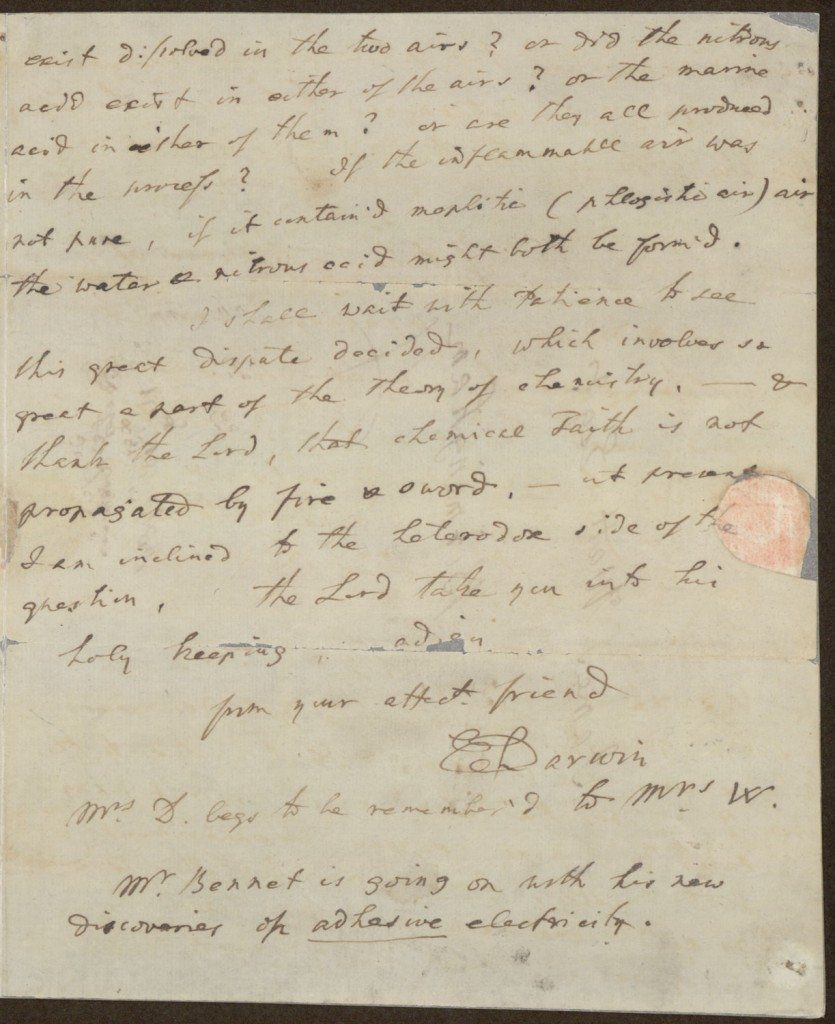 exist dissolved in the two airs? or did the nitrous
acid exist in either of the airs? or the marine
acid in either of them? or are they all produced
in the process? If the inflammable air was
not pure, if it contain'd mephitic (phlogistic air) air
the water & nitrous acid might both be form'd.
I shall wait with Patience to see
this great dispute decided, which involves so
great a part of the theory of chemistry. — &
thank the Lord, that chemical Faith is not
propagated by fire & sword. — at present
I am inclined to the heterodox side of the
question. the Lord take you into his
holy keeping, adieu
from your affect. friend
E Darwin
Mrs D. begs to be remember'd to Mrs W.
Mr Bennet is going on with his new
discoveries of adhesive electricity.